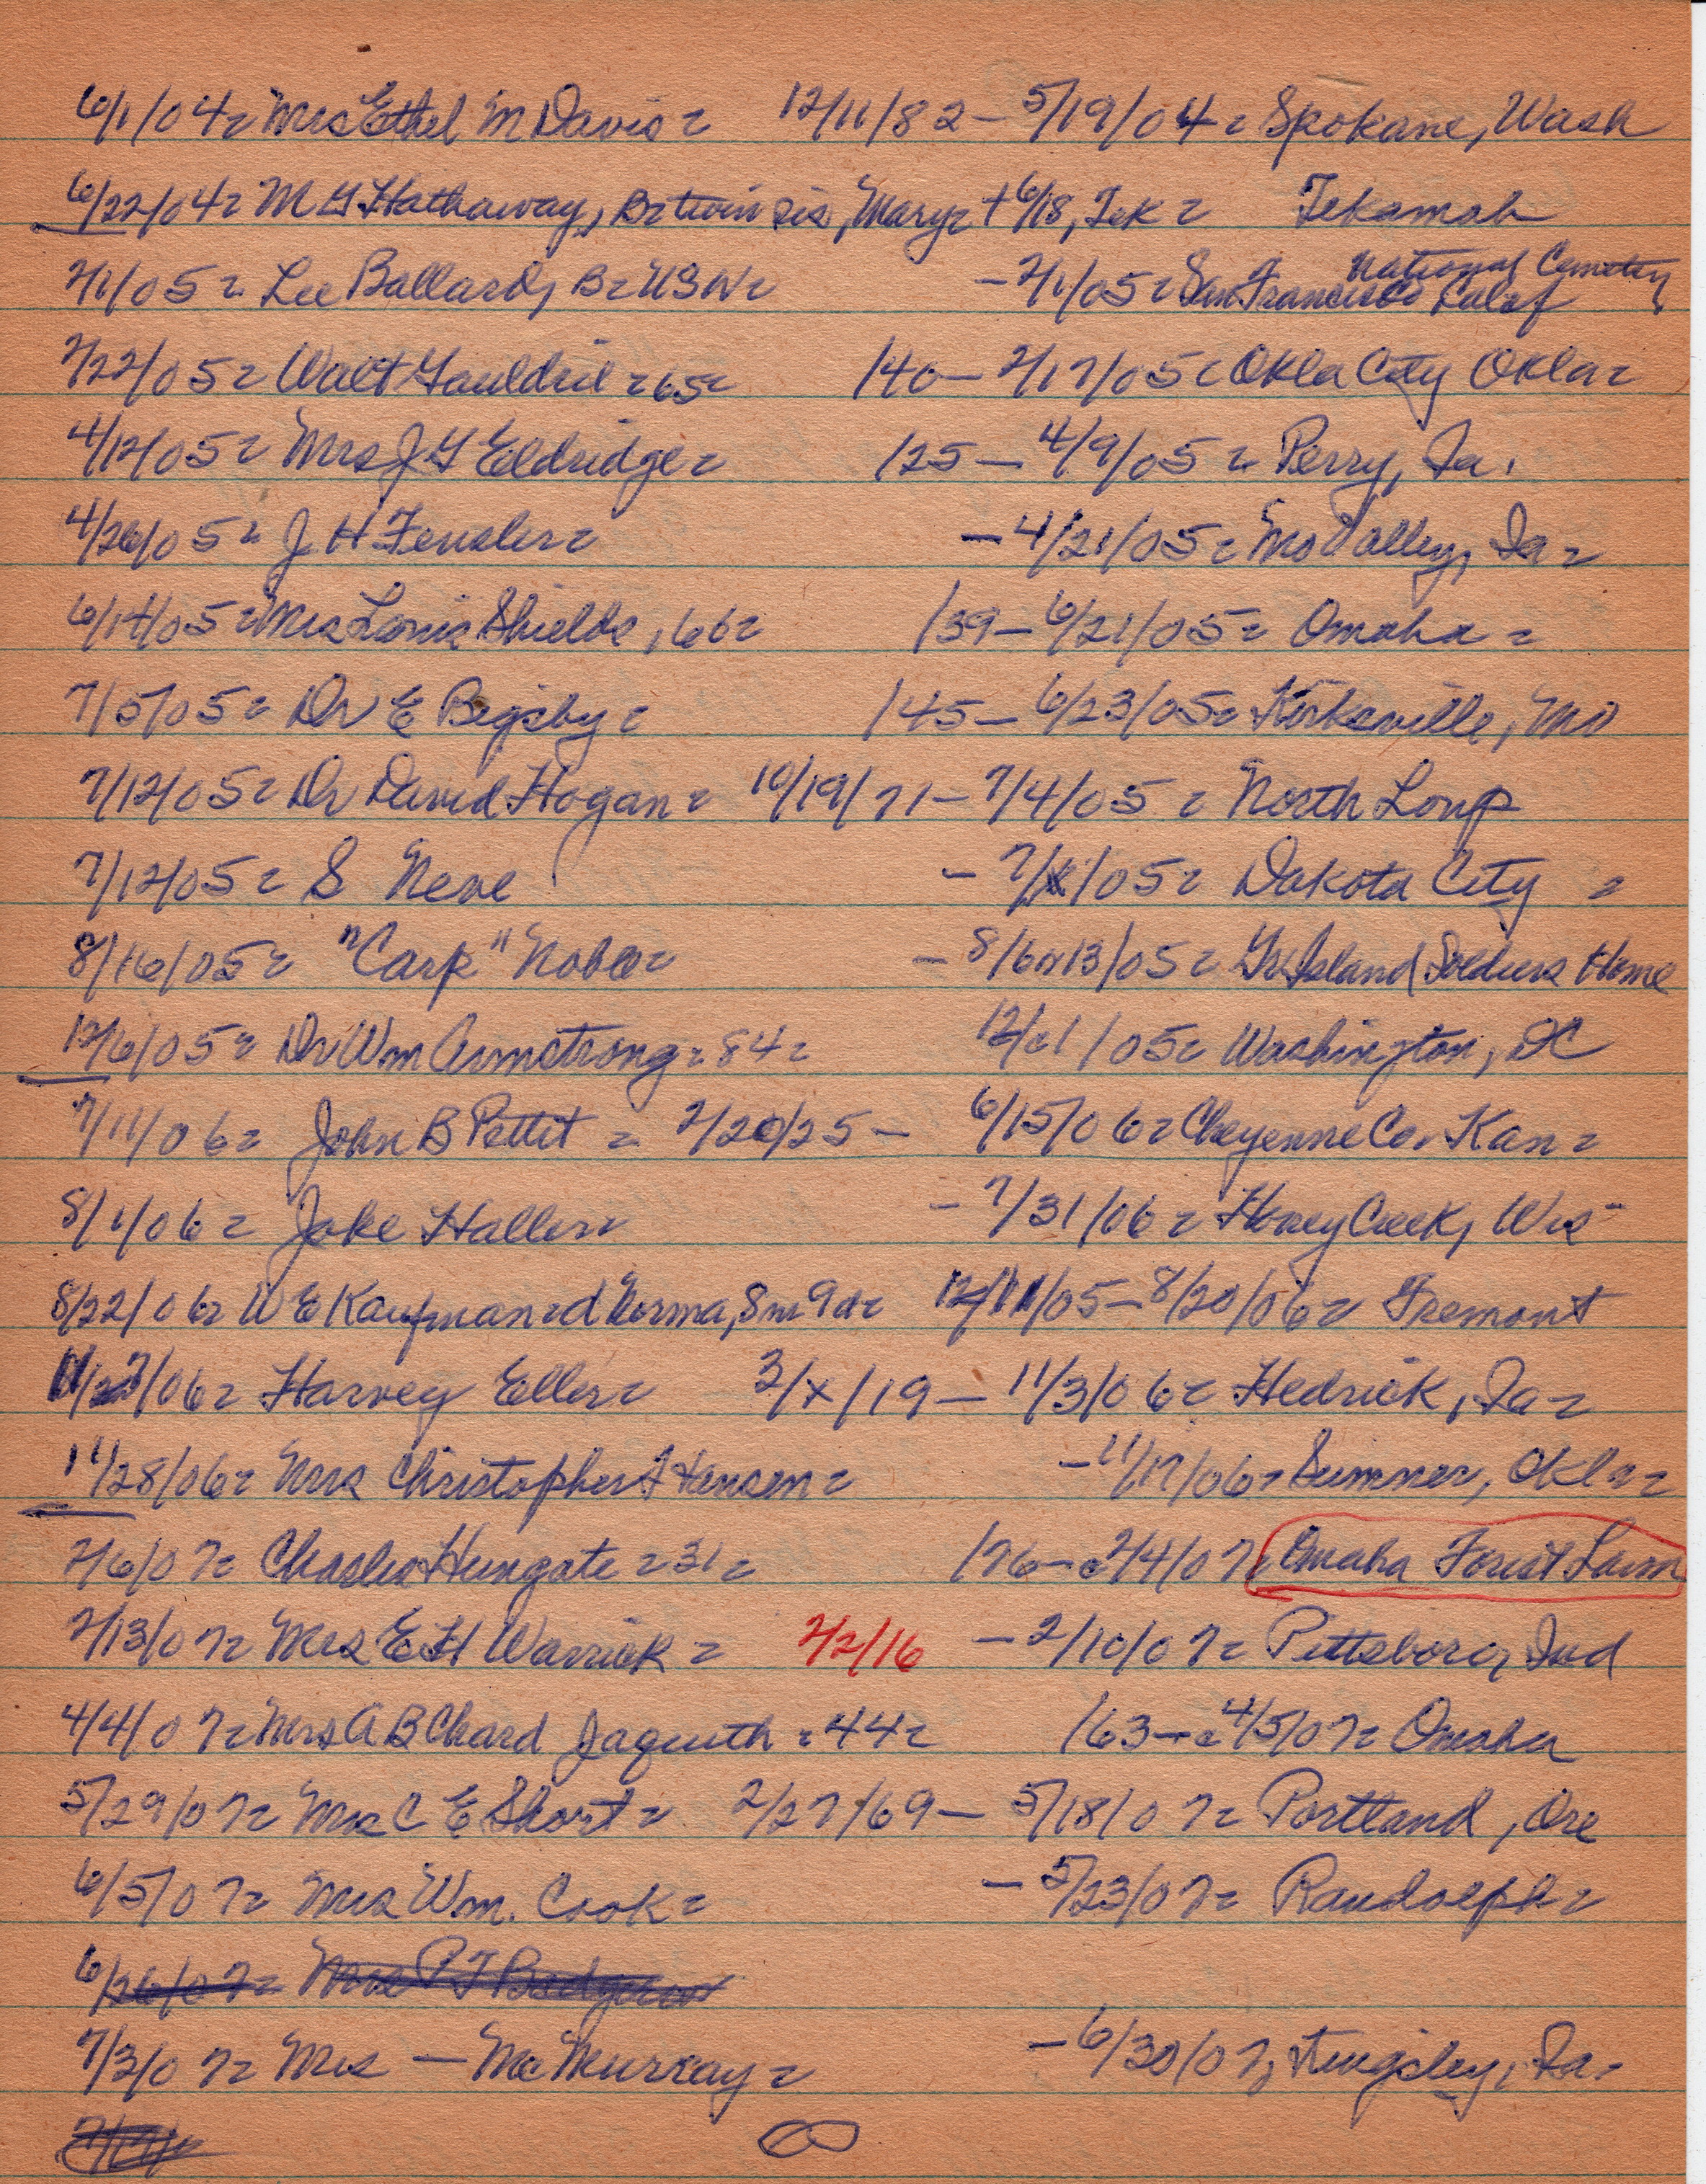 6/1/04 = Mrs Ethel M Davis = 12/11/82 - 5/19/04 = Spokane, Wash
6/22/04 = M G Hathaway, B = twin sis, Mary = + 6/18, Tek = Tekamah
2/1/05 = Lee Ballard, B = USN = - 2/1/05 = San Francisco Calif National Cemetery
2/22/05 = Walt = 65 = /40 - 2/17/05 = Okla City Okla =
4/12/05 = Mrs J G Eldridge = /25 - 4/9/05 = Perry, Ia.
4/26/05 = J H Fensler = - 4/21/05 = Mo Valley, Ia =
6/14/05 = Mrs Louis Shields, 66 = /39 - 6/21/05 = Omaha =
7/5/05 = Dr E Bigsby = /45 - 6/23/05 = Kirksville, Mo
7/12/05 = Dr David Hogan = 10/19/71 - 7/4/05 = North Loup
7/12/05 = S Neve - 7/ /05 = Dakota City =
8/16/05 = "Carp" Noble = - 8/6 or 13/05 = Gr Island Soldiers Home
12/6/05 = Dr Wm Armstrong = 84 = 12/1/05 = Washington, DC
7/11/06 = John B Pettit = 2/20/25 - 6/15/06 = Cheyenne Co. Kan =
8/1/06 = Jake Haller = - 7/31/06 = Honey Creek, Wis
8/22/06 = W E Kaufman = d Norma, 8m 9d = 12/11/05 - 8/20/06 = Fremont
11/27/06 = Harvey Eller = 3/x/19 - 11/3/06 = Hedrick, Ia =
11/28/06 = Mrs Christopher A Hensen = - 11/17/06 = Sumner, Okla =
2/6/07 = Charles Hungate = 31 = /76 - c 2/4/07 = Omaha Forest Lawn
2/13/07 = Mrs E H Warrick = 2/2/16 - 2/10/07 = Pittsboro, Ind
4/4/07 = Mrs A B Chard Jaquith = 44 = /63 - c 4/5/07 = Omaha
5/29/07 = Mrs C E Short = 2/27/69 - 5/18/07 = Portland, Ore
6/5/07 = Mrs Wm. Cook = - 5/23/07 = Randolph =
6/26/07 = Mrs P T Badgerow
7/3/07 = Mrs — McMurray = - 6/30/07, Kingsley, Ia.